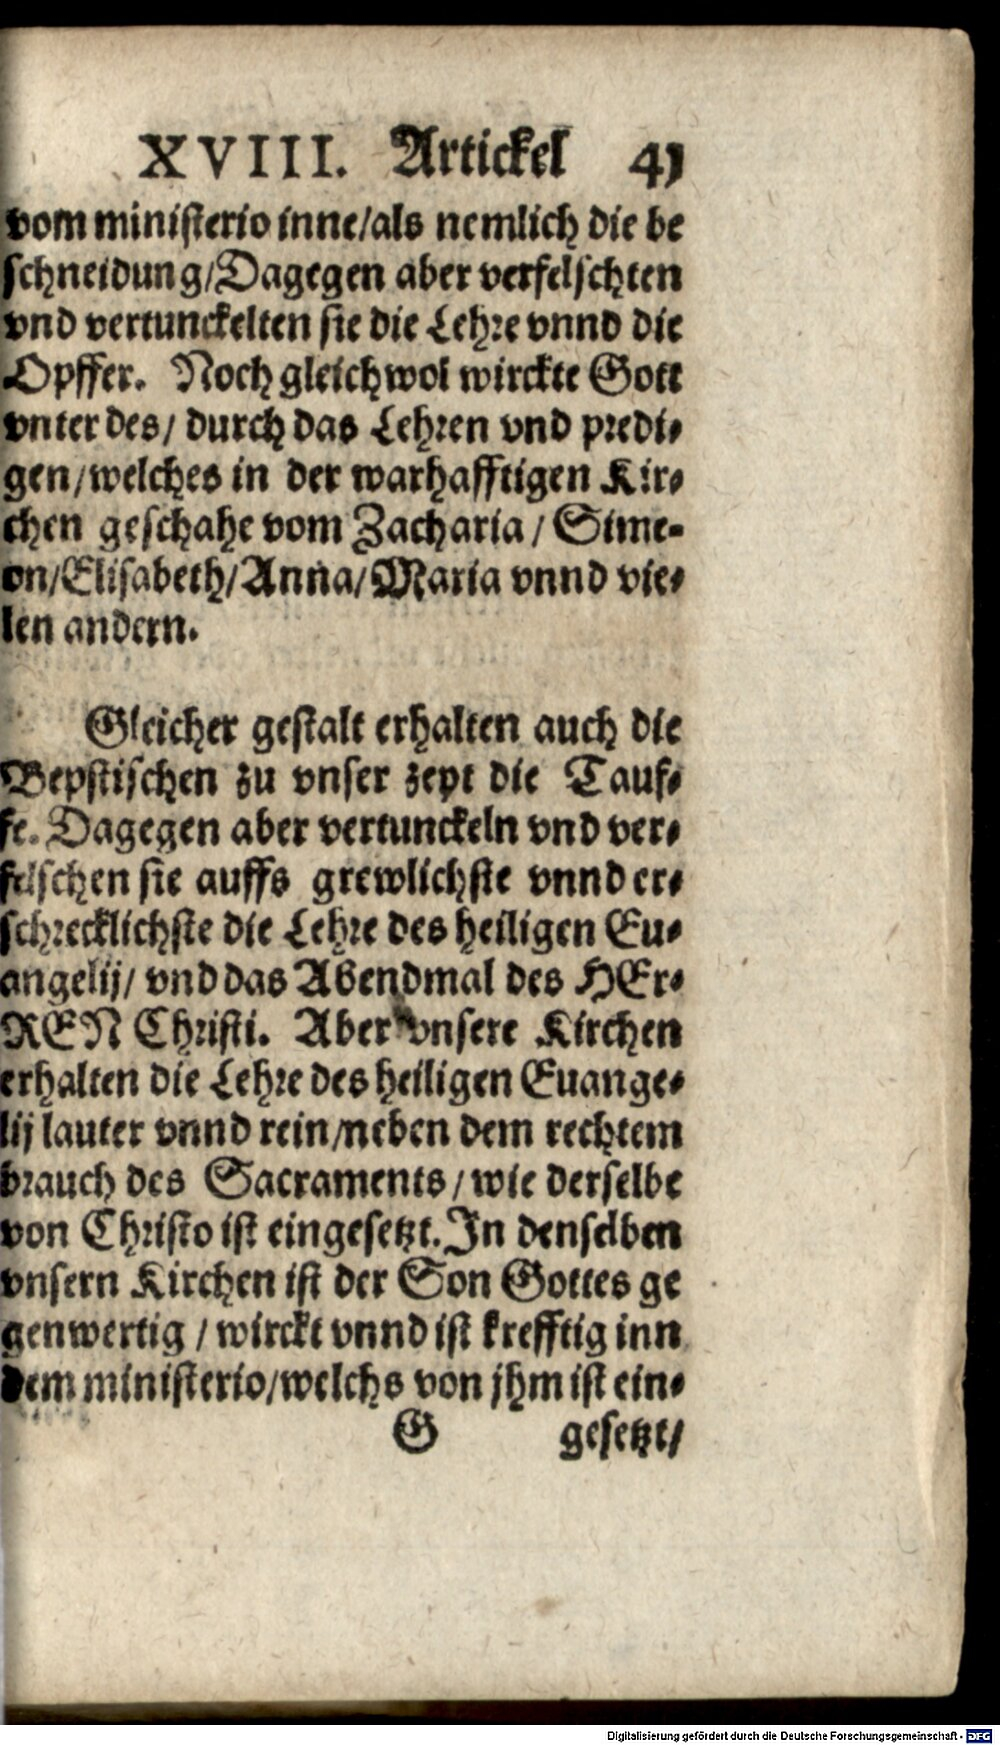 XVIII. Artickel 41
vom ministerio inne/als nemlich die be
schneidung/Dagegen aber verfelschten
vnd vertunckelten sie die Lehre vnnd die
Opffer. Noch gleichwol wirckte Gott
vnter des/ durch das Lehren vnd predi-
gen/welches in der warhafftigen Kir-
chen geschahe vom Zacharia/ Sime-
on/Elisabeth/Anna/Maria vnnd vie-
len andern.
Gleicher gestalt erhalten auch die
Bepstischen zu vnser zeyt die Tauf-
fe. Dagegen aber vertunckeln vnd ver-
felschen sie auffs grewlichste vnnd er-
schrecklichste die Lehre des heiligen Eu-
angelij/ vnd das Abendmal des HEr-
REN Christi. Aber vnsere Kirchen
erhalten die Lehre des heiligen Euange-
lij lauter vnnd rein/neben dem rechtem
brauch des Sacraments/ wie derselbe
von Christo ist eingesetzt. In denselben
vnsern Kirchen ist der Son Gottes ge
genwertig / wirckt vnnd ist krefftig inn
dem ministerio/welchs von jhm ist ein-
G gesetzt/
Digitalisierung gefördert durch die Deutsche Forschungsgemeinschaft - DFG